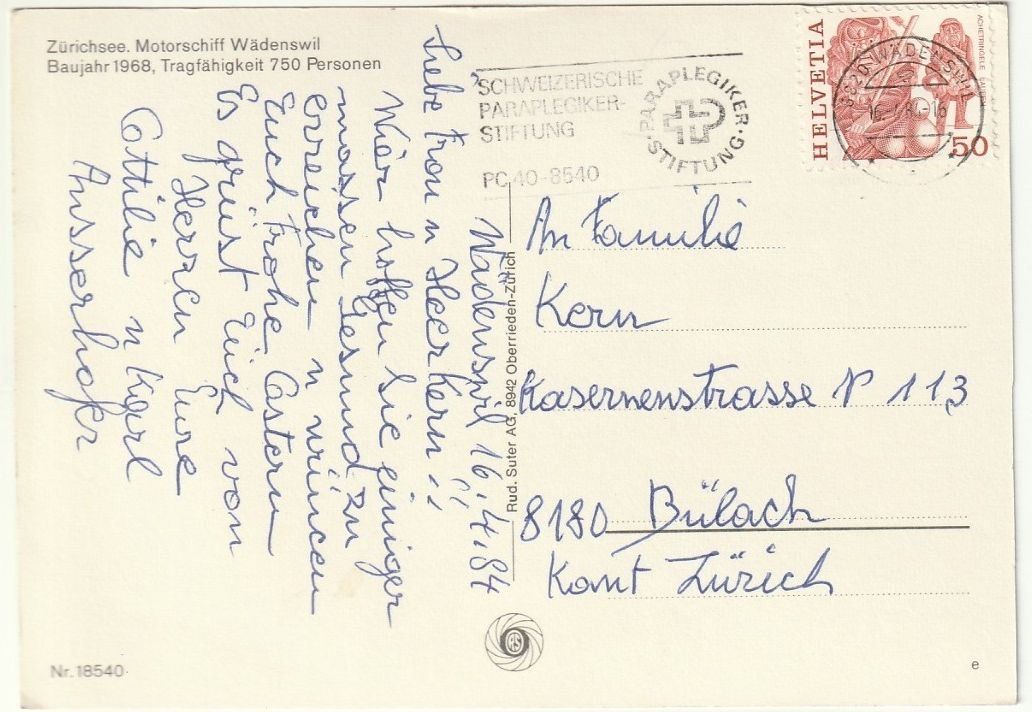 Zürichsee. Motorschiff Wädenswil
Baujahr 1968, Tragfähigkeit 750 Personen
SCHWEIZERISCHE
PARAPLEGIKER-
STIFTUNG
PC 40-8540
PARAPLEGIKER · STIFTUNG ·
HELVETIA
50
8820 WÄDENSWIL
Wädenswil 16.4.84
Liebe Frau u Heer Kern!!
Wier hoffen Sie einiger
massen Gesund zu
erreichen u wüncen
Euch Frohe Oastern
Es grüst Euch von
Herzen Eure
Ottilie u Karl
Ausserhofer
Rud. Suter AG, 8942 Oberrieden-Zürich
An Familie
Kern
Kasernenstrasse N 113
8180 Bülach
Kant Zürich
RS
Nr. 18540
e